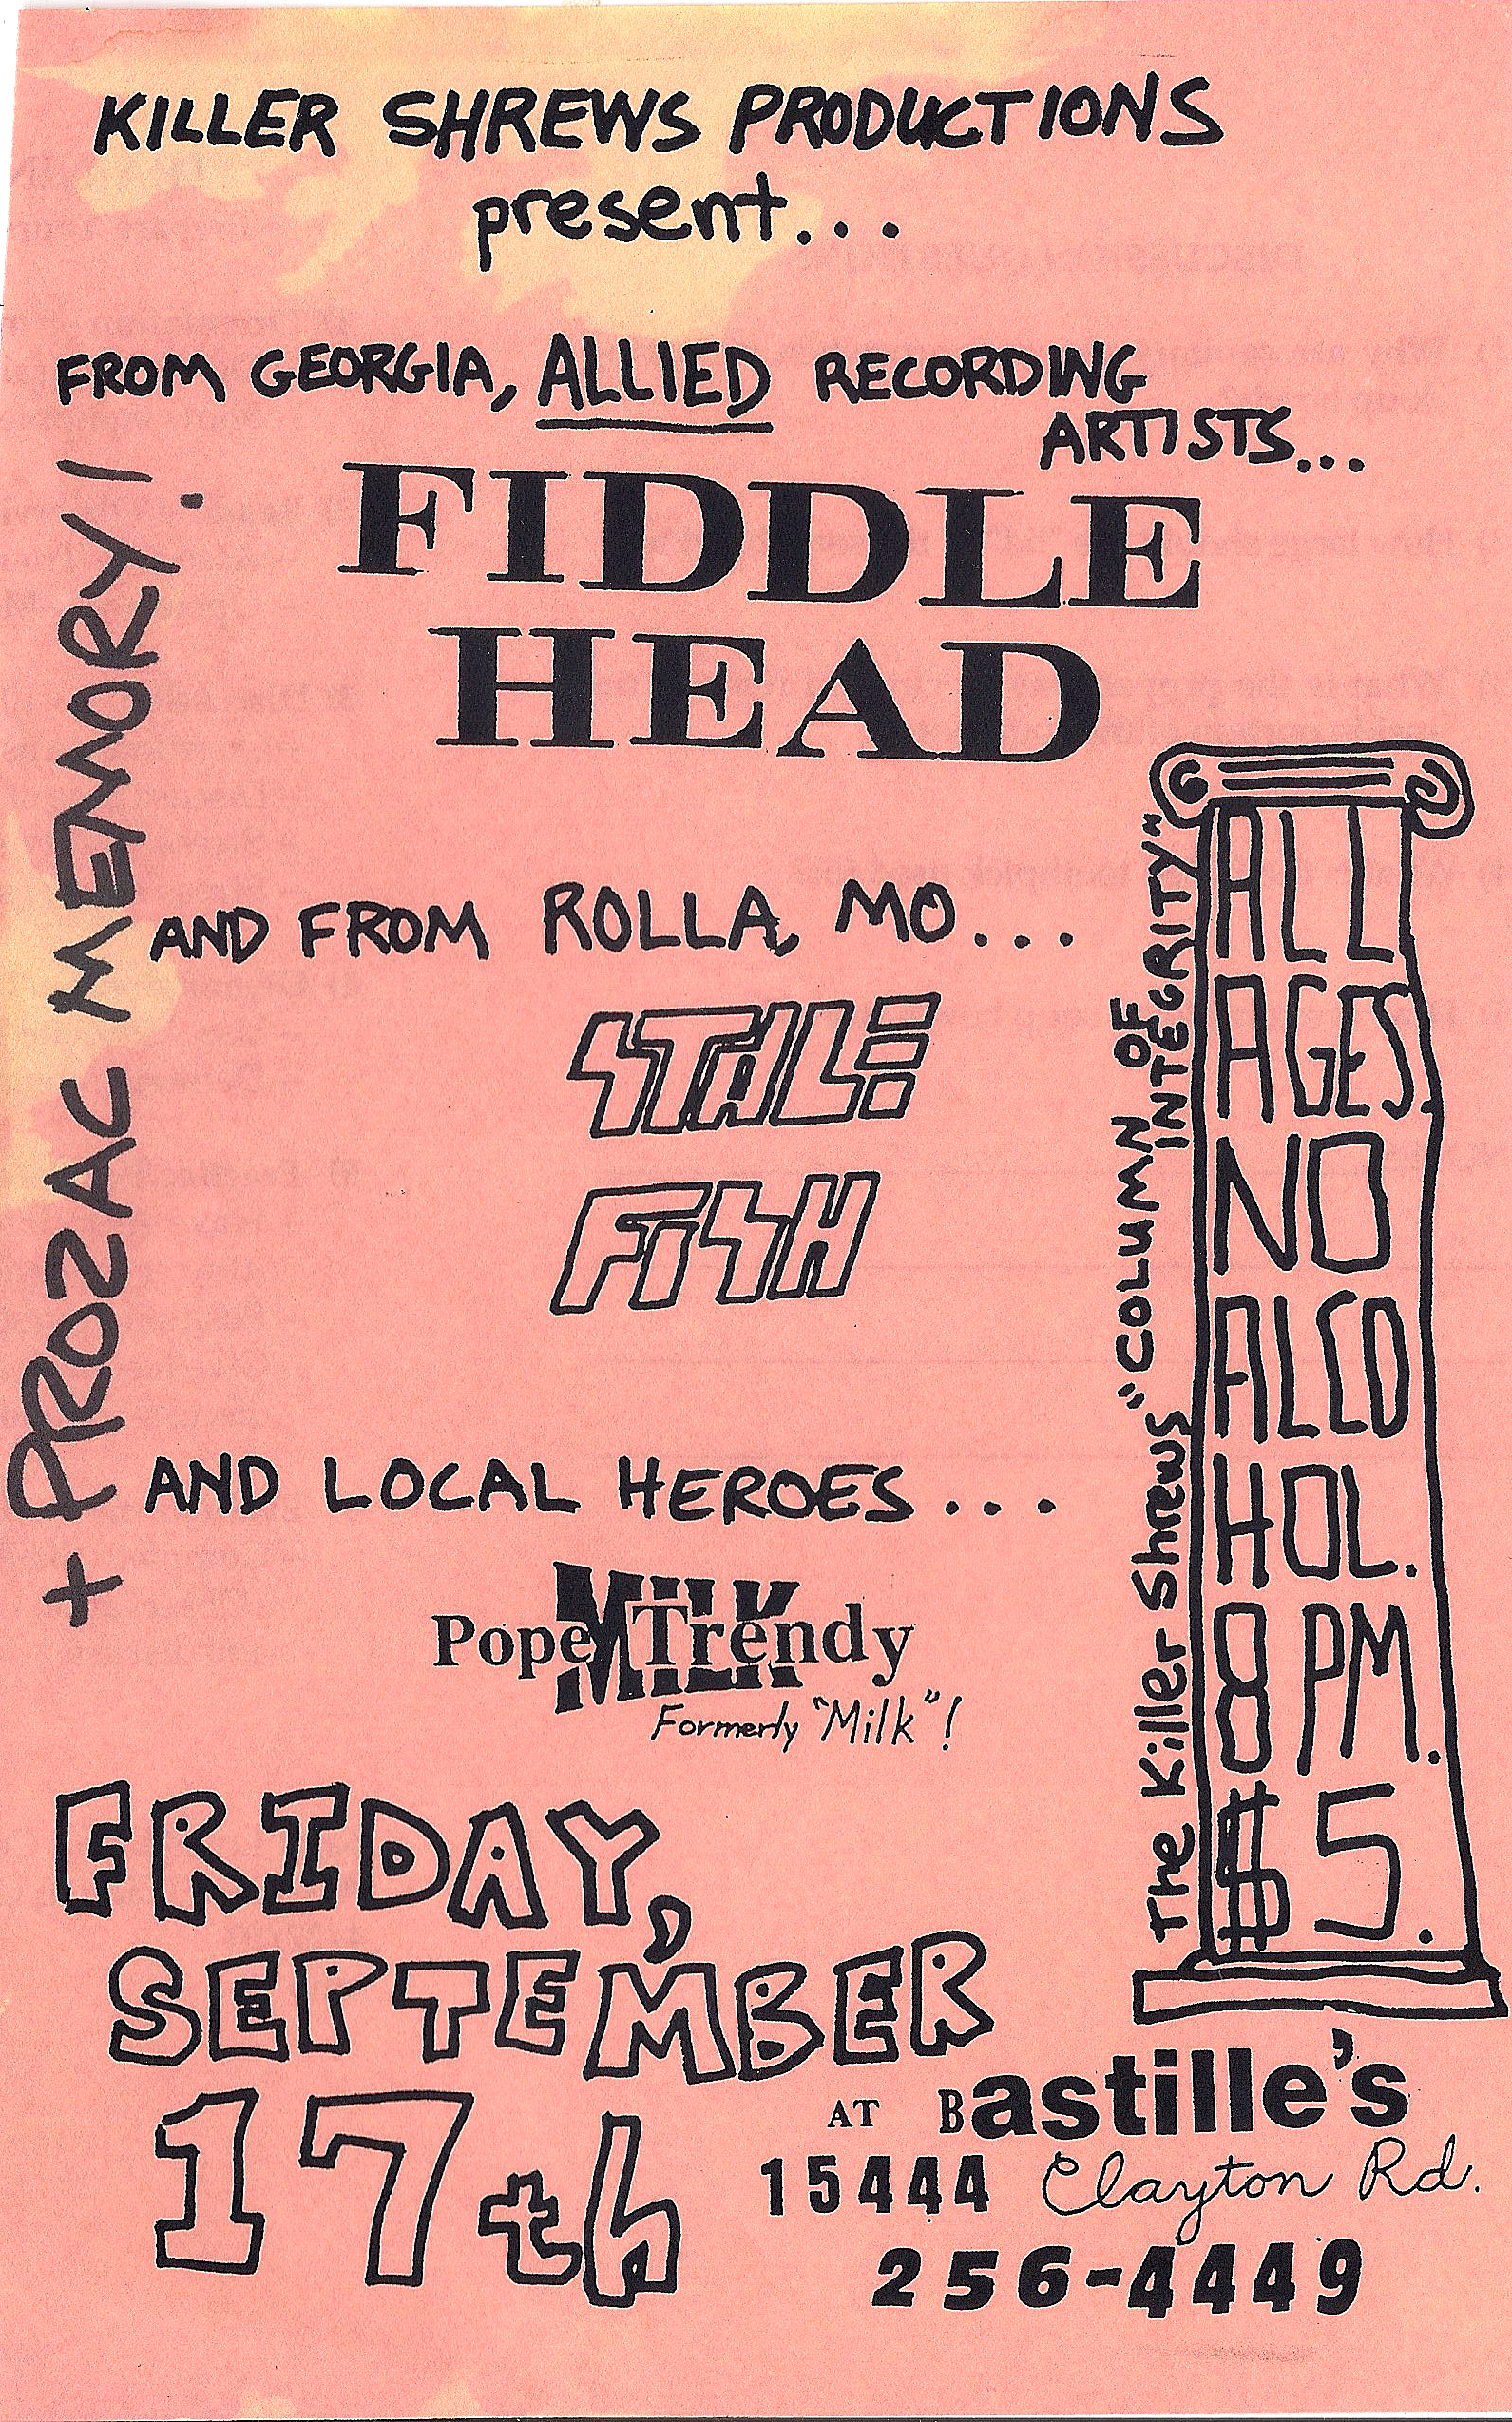 KILLER SHREWS PRODUCTIONS
present...
FROM GEORGIA, ALLIED RECORDING
ARTISTS...
FIDDLE
HEAD
+ PROZAC MEMORY!
AND FROM ROLLA, MO...
STALE
FISH
AND LOCAL HEROES...
MILK
Pope Trendy
Formerly "Milk"!
The Killer Shrews "COLUMN OF
INTEGRITY"
ALL
AGES.
NO
ALCO
HOL.
8 PM.
$5.
FRIDAY,
SEPTEMBER
17th
AT Bastille's
15444 Clayton Rd.
256-4449